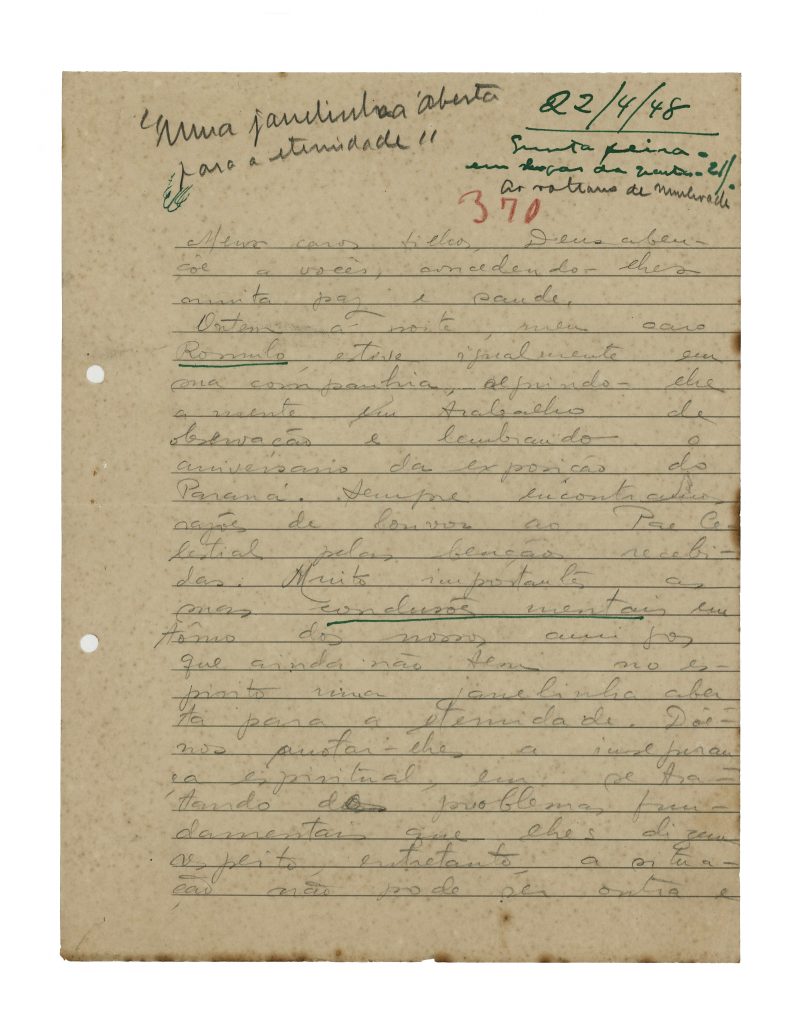 "Numa janelinha aberta
para a eternidade"
22/4/48
Quinta feira -
em logar da quarta - 21/.
370
Meus caros filhos, Deus aben-
çõe a vocês, concedendo-lhes
muita paz e saude.
Ontem á noite, meu caro
Romulo esteve igualmente em
sua companhia, seguindo-lhe
a mente em trabalho de
observação e lembrando o
aniversário da exposição do
Paraná. Sempre encontramos
razões de louvor ao Pae Ce-
lestial pelas bençãos recebi-
das. Muito importantes as
suas conclusões mentais em
tôrno dos nossos amigos
que ainda não tem no es-
pirito uma janelinha aber
ta para a eternidade. Dóe-
nos anotar-lhes a inseguran
ça espiritual, em se tra-
tando dos problemas fun-
damentais que lhes dizem
respeito, entretanto, a situa-
ção não pode ser outra e